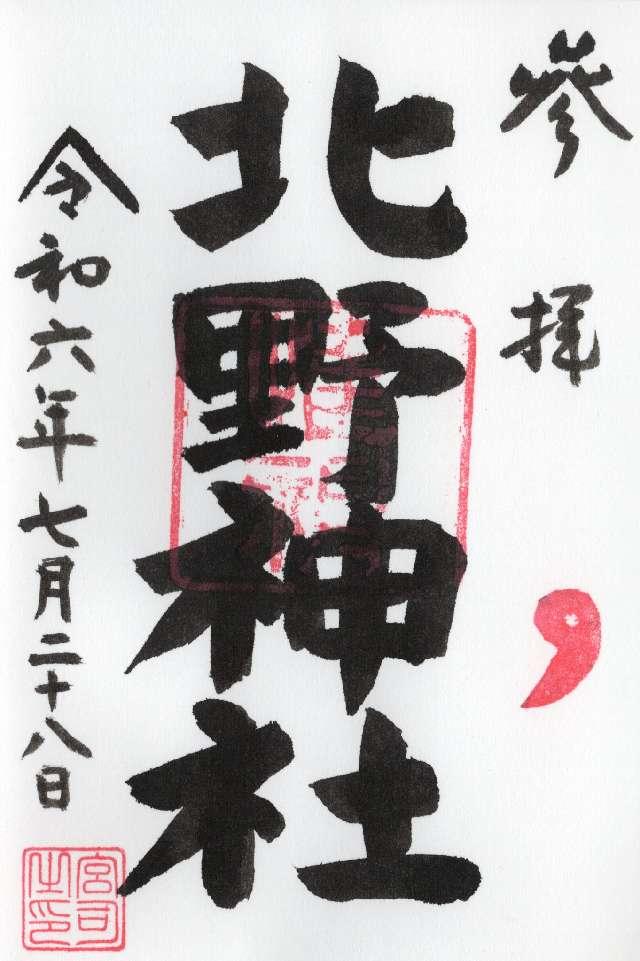 参拝
北野神社
令和六年七月二十八日
宮司之印